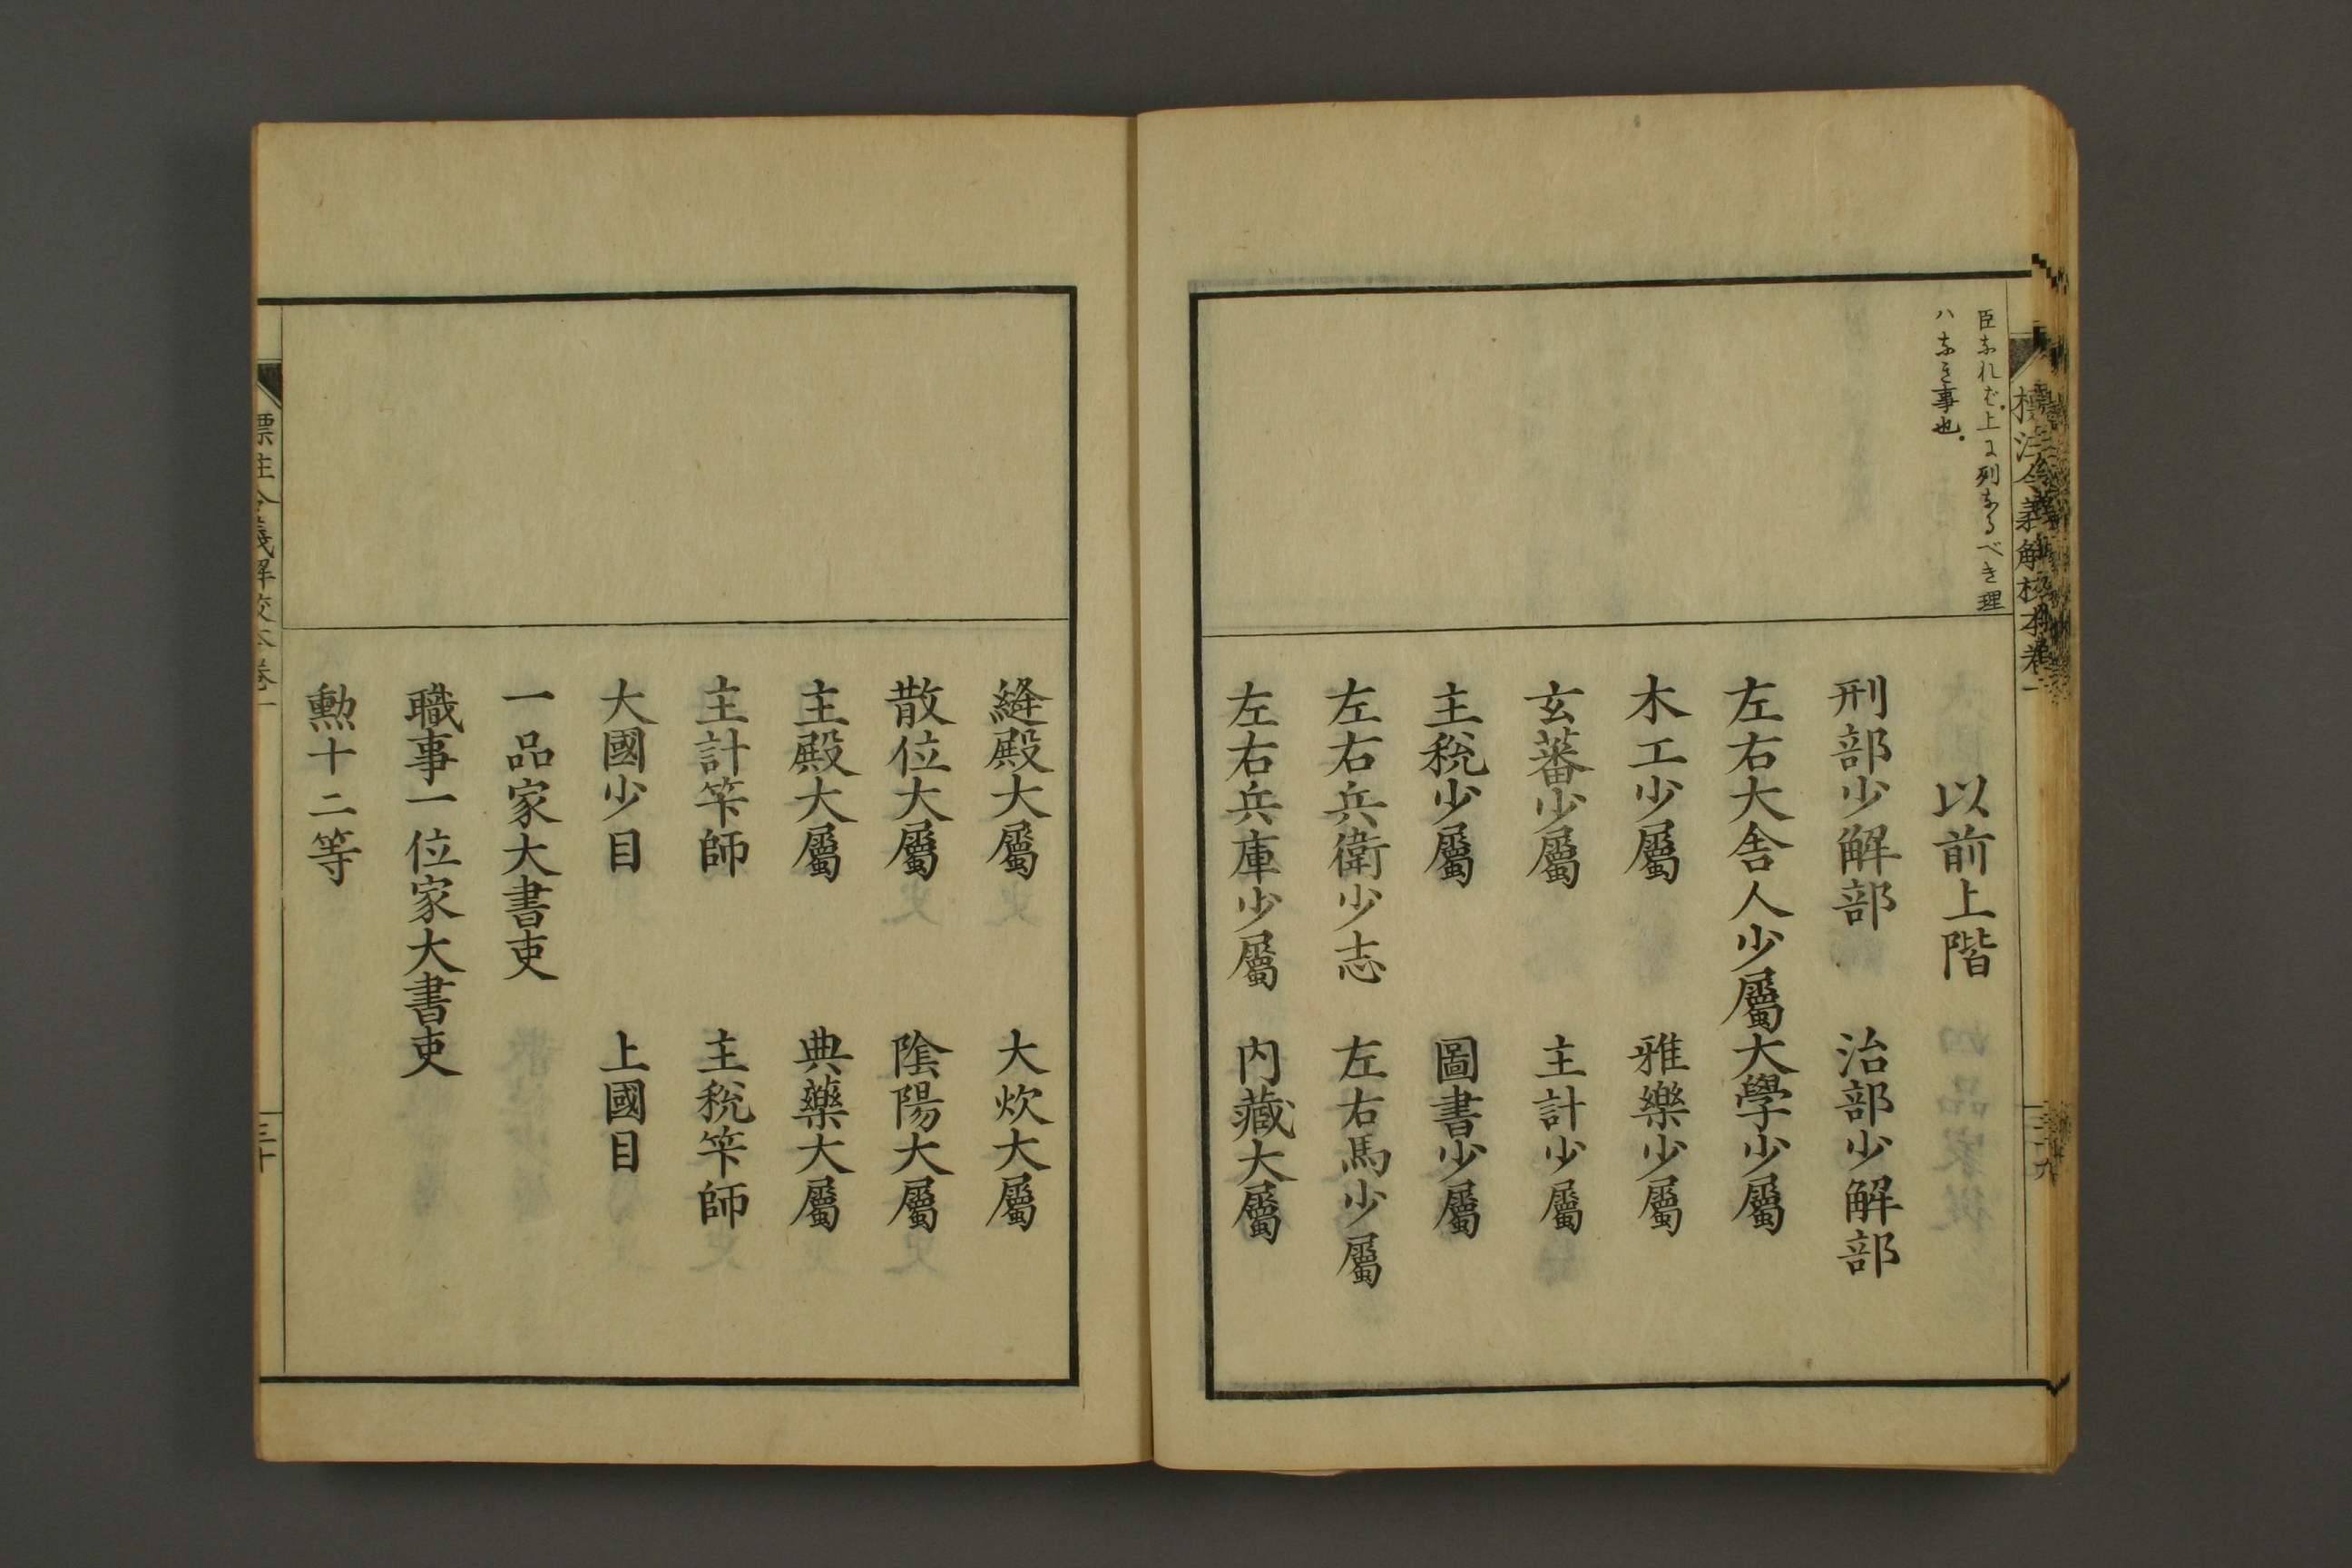 臣なれば上に列なるべき理
ハなき事也
以前上階
刑部少解部　治部少解部
左右大舎人少屬大學少屬
木工少屬　雅樂少屬
玄蕃少屬　主計少屬
主稅少屬　圖書少屬
左右兵衛少志　左右馬少屬
左右兵庫少屬　内藏大屬
縫殿大屬　大炊大屬
散位大屬　陰陽大屬
主殿大屬　典藥大屬
主計笇師　主稅笇師
大國少目　上國目
一品家大書吏
職事一位家大書吏
勲十二等
標注令義解校本卷一
三十